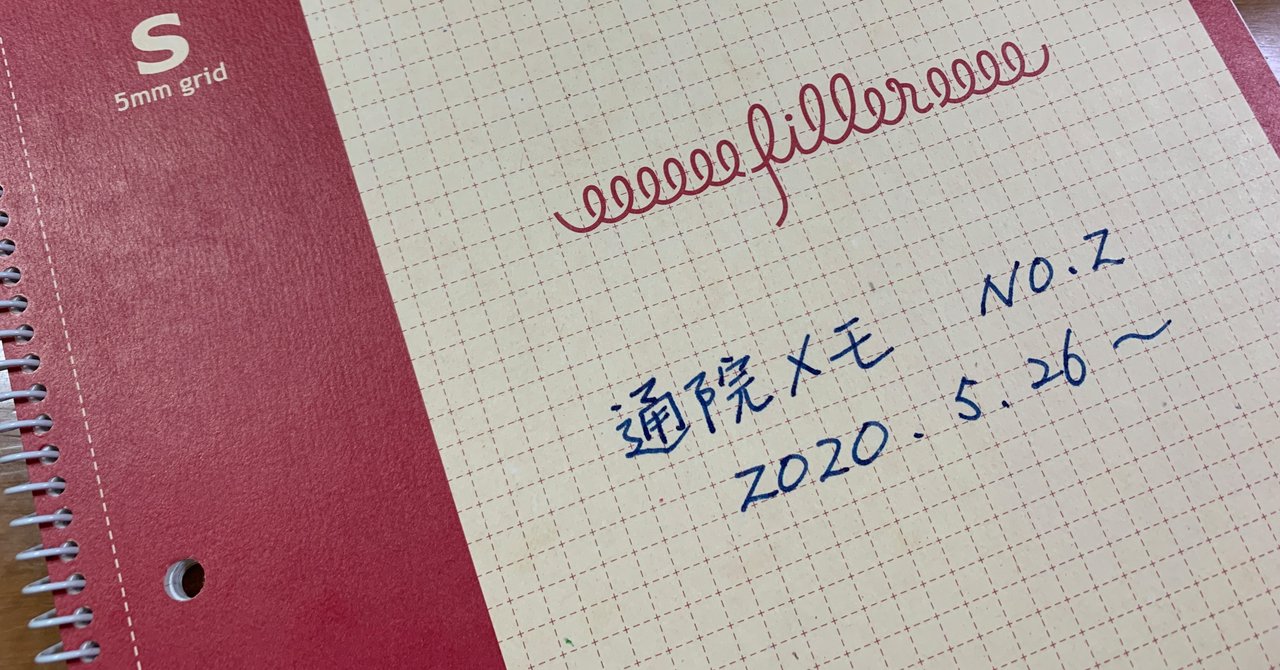 S
5mm grid
filler
通院メモ NO.2
2020.5.26~